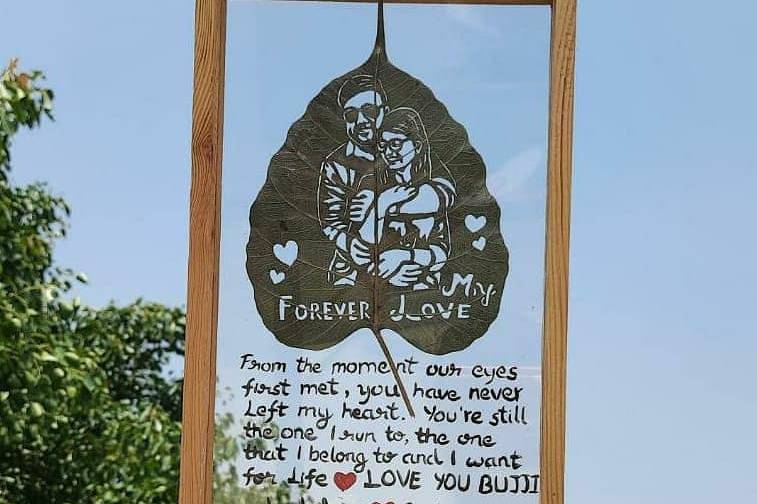 My
FOREVER LOVE
From the moment our eyes
first met, you have never
Left my heart. You're still
the one I run to, the one
that I belong to and I want
for Life ❤ LOVE YOU BUJJI